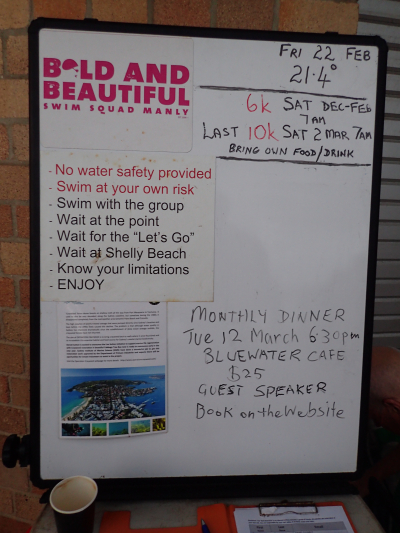 BOLD AND
BEAUTIFUL
SWIM SQUAD MANLY
FRI 22 FEB
21.4°
6k SAT DEC-FEB
7AM
LAST 10k SAT 2 MAR 7AM
BRING OWN FOOD/DRINK
- No water safety provided
- Swim at your own risk
- Swim with the group
- Wait at the point
- Wait for the “Let’s Go”
- Wait at Shelly Beach
- Know your limitations
- ENJOY
MONTHLY DINNER
Tue 12 March 6:30pm
BLUEWATER CAFE
$25
GUEST SPEAKER
Book on the Website